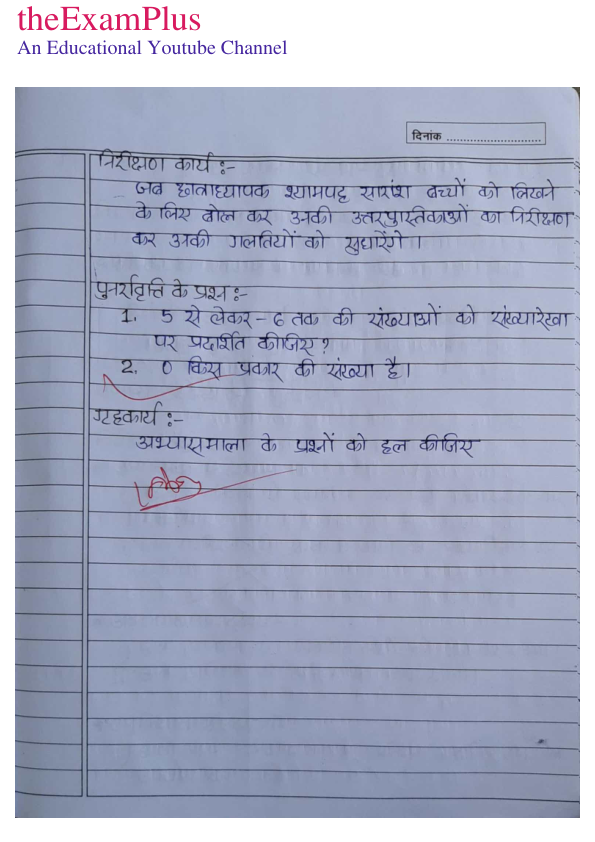 theExamPlus
An Educational Youtube Channel
दिनांक ............................
निरीक्षण कार्य :-
जब छात्राध्यापक श्यामपट्ट सारांश बच्चों को लिखने
के लिए बोल कर उनकी उत्तरपुस्तिकाओं का निरीक्षण
कर उनकी गलतियों को सुधारेंगे ।
पुनर्रावृत्ति के प्रश्न :-
1. 5 से लेकर - 6 तक की संख्याओं को संख्यारेखा
पर प्रदर्शित कीजिए ?
2. 0 किस प्रकार की संख्या है।
गृहकार्य :-
अभ्यासमाला के प्रश्नों को हल कीजिए